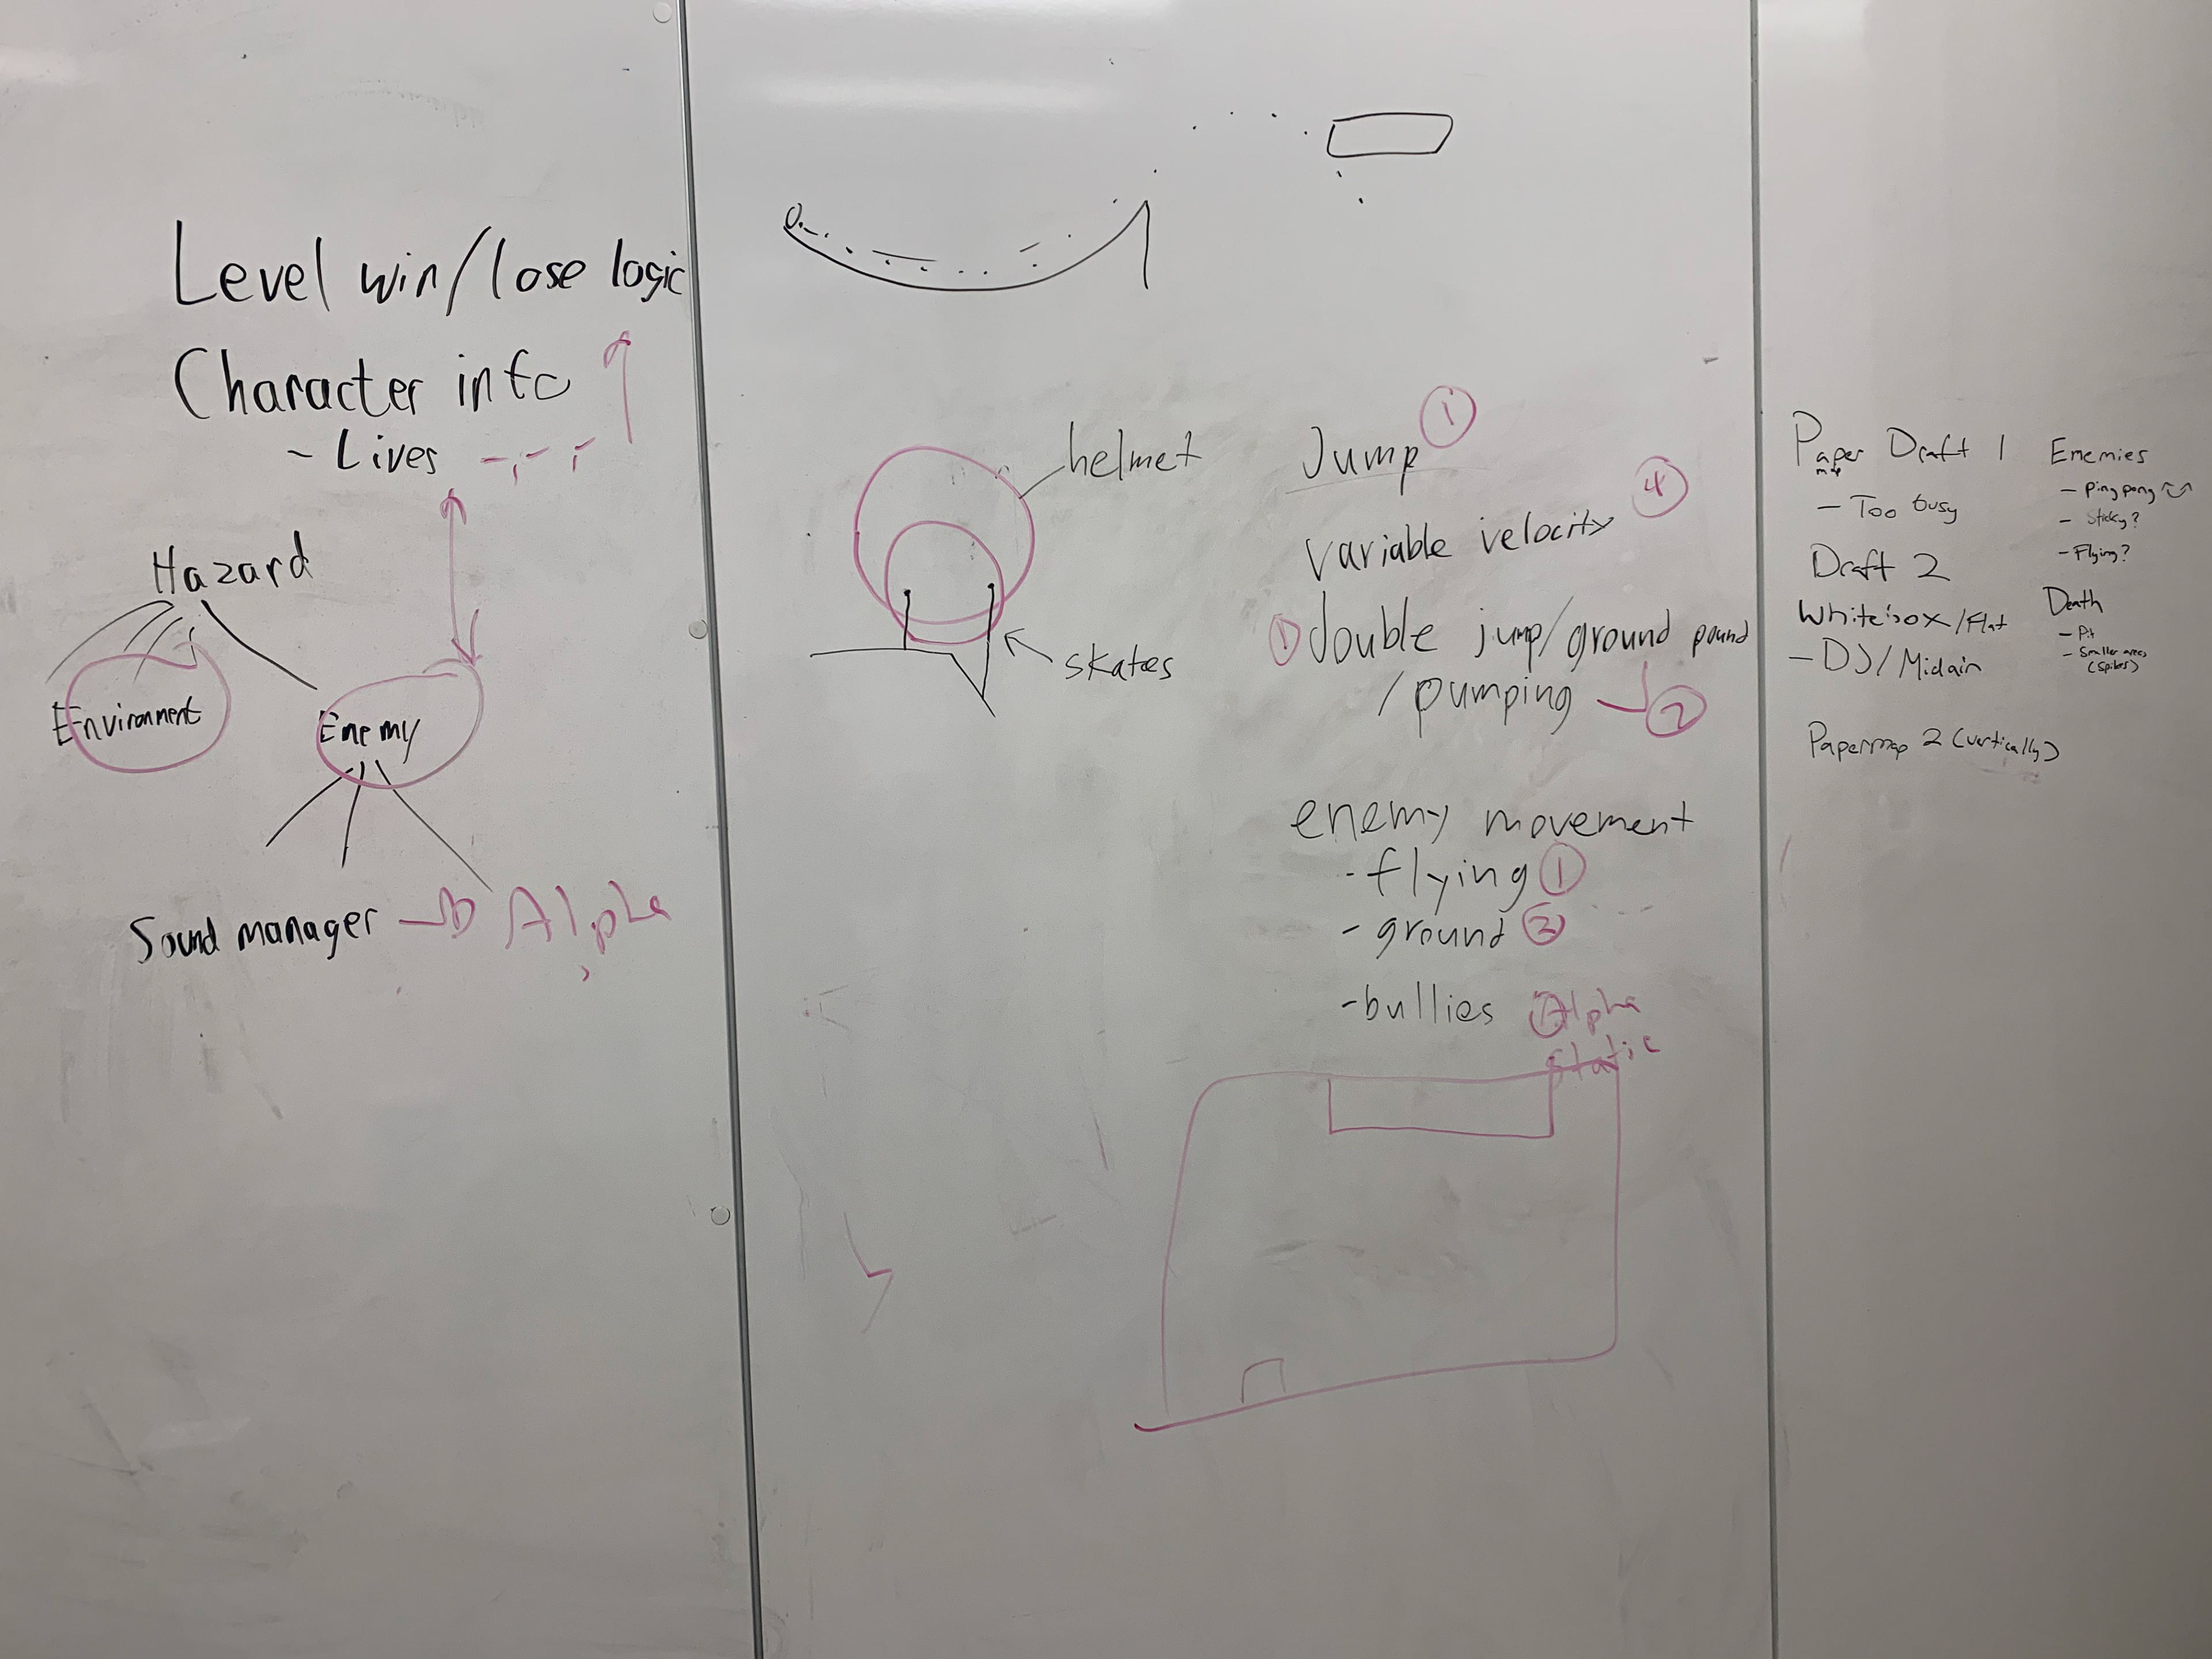 Level win/lose logic
Character info
- Lives
Hazard
Environment
Enemy
Sound manager → Alpha
helmet
skates
Jump ①
variable velocity ④
① double jump/ground pound
/pumping → ②
enemy movement
- flying ①
- ground ②
- bullies Alpha
static
Paper Draft 1
map
- Too busy
Draft 2
Whitebox/Flat
- DJ/Midair
Papermap 2 (vertically)
Enemies
- Ping pong
- Sticky?
- Flying?
Death
- Pit
- Smaller areas
(Spikes)